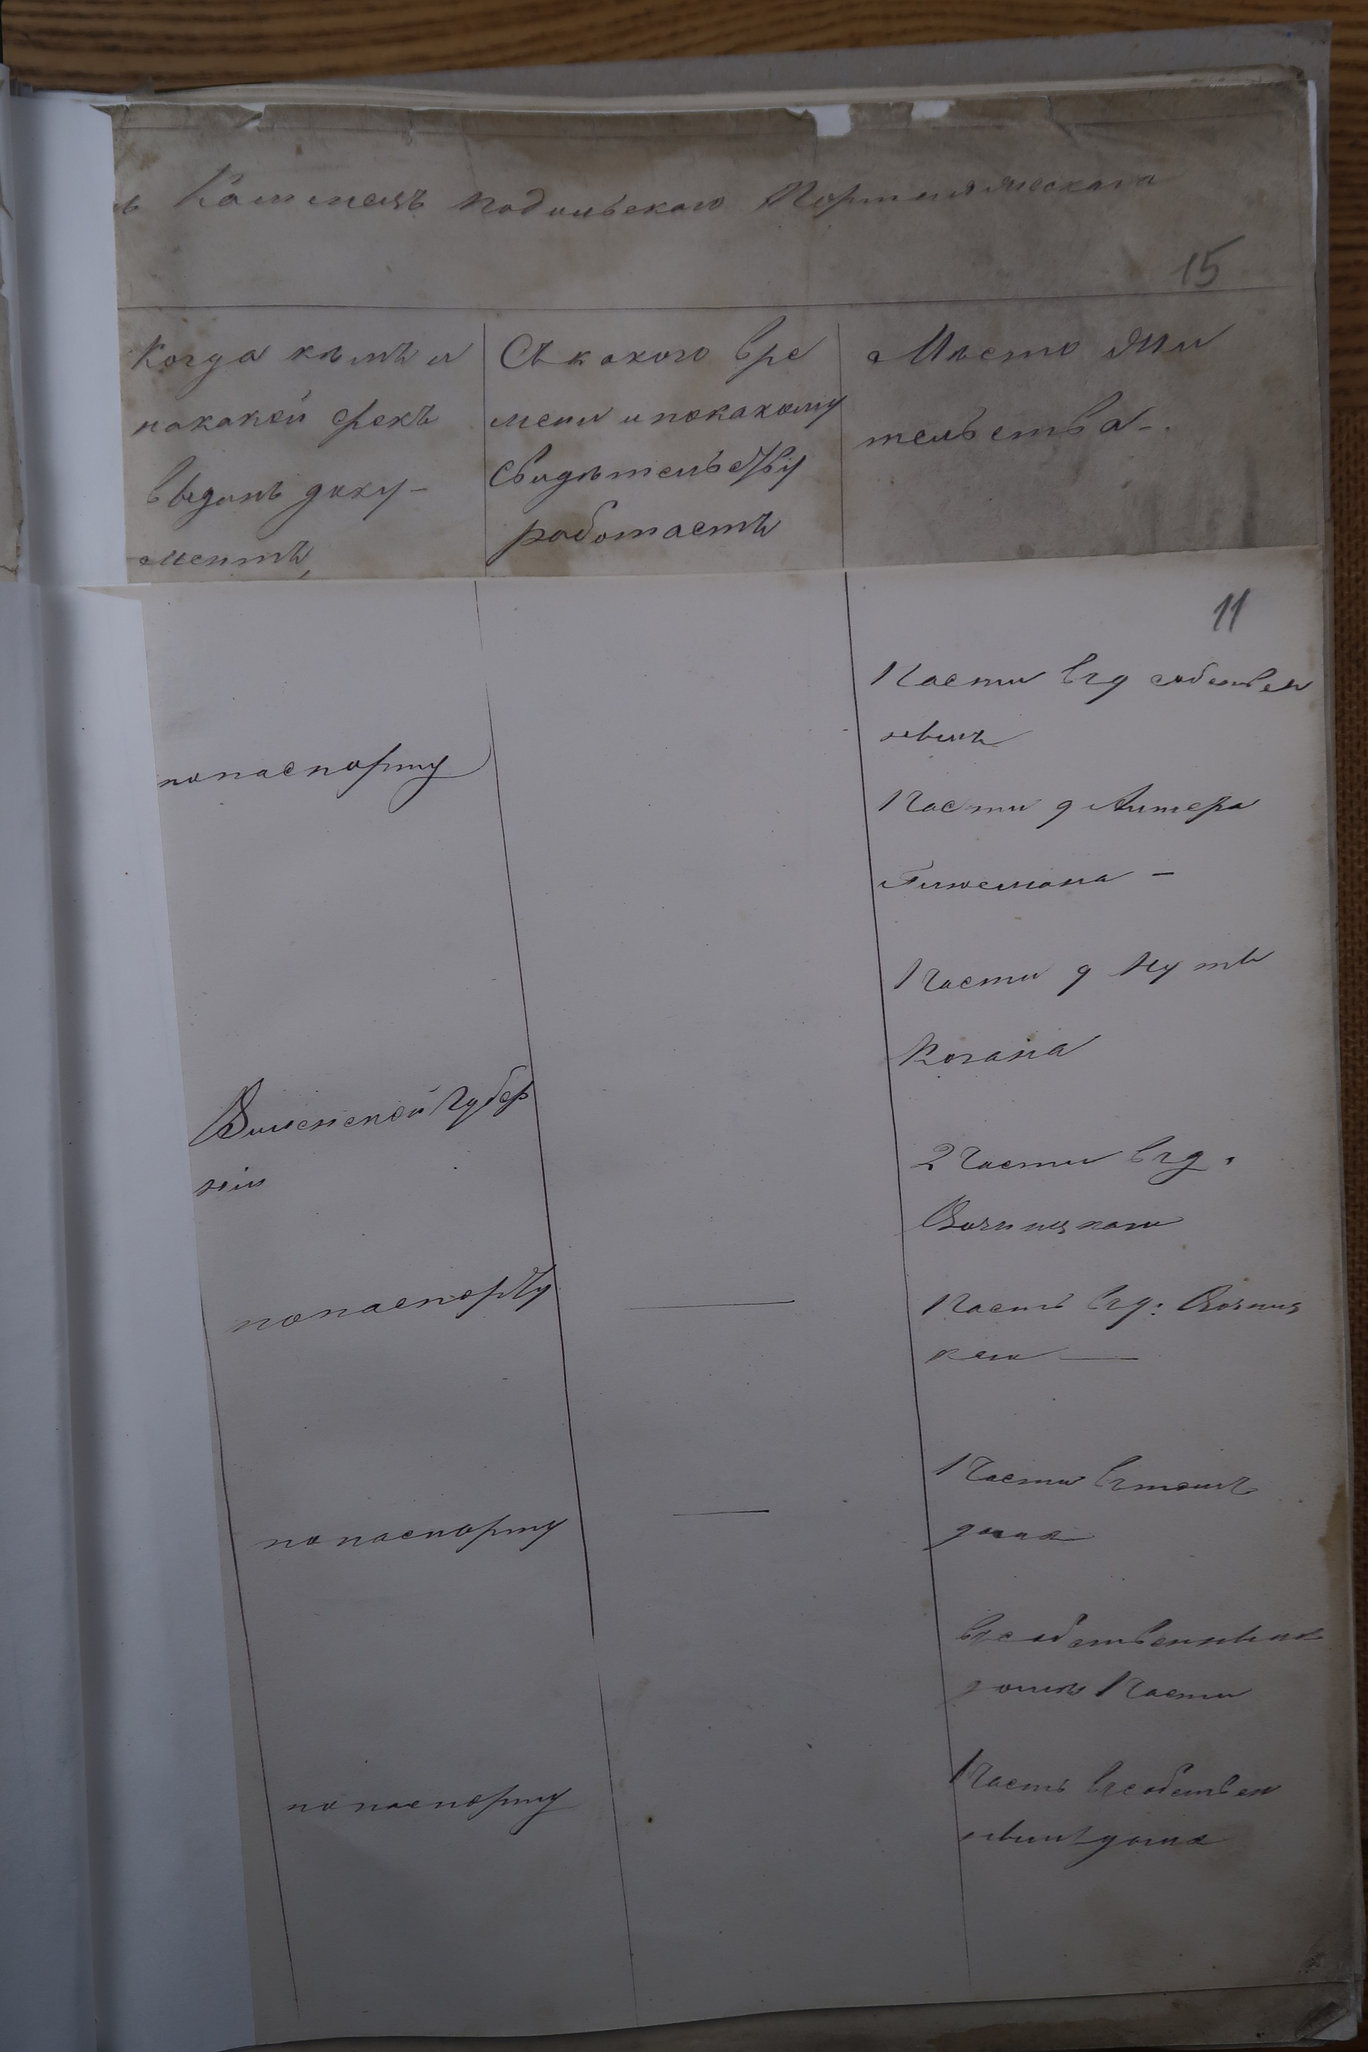 ъ Каменецъ Подольского Портняжескаго
15
Когда кѣмъ и
накакой срокъ
выданъ доку-
ментъ,
Съ какого вре
мени и покакому
свидѣтельству
работаетъ
Мѣсто жи
тельства-.
11
1 части въ д собствен
номъ
попаспорту
1 части д Антера
Гижемана -
1 части д Нутъ
Когана
Виленской Губер
ніи
2 части въ д.
Вочницкаго
попаспорту
1 часть въ д: Вочниц
каго
1 части въ томъ
домѣ
попаспорту
въ собственномъ
домѣ 1 части
1 часть въ собствен
номъ домѣ
попаспорту